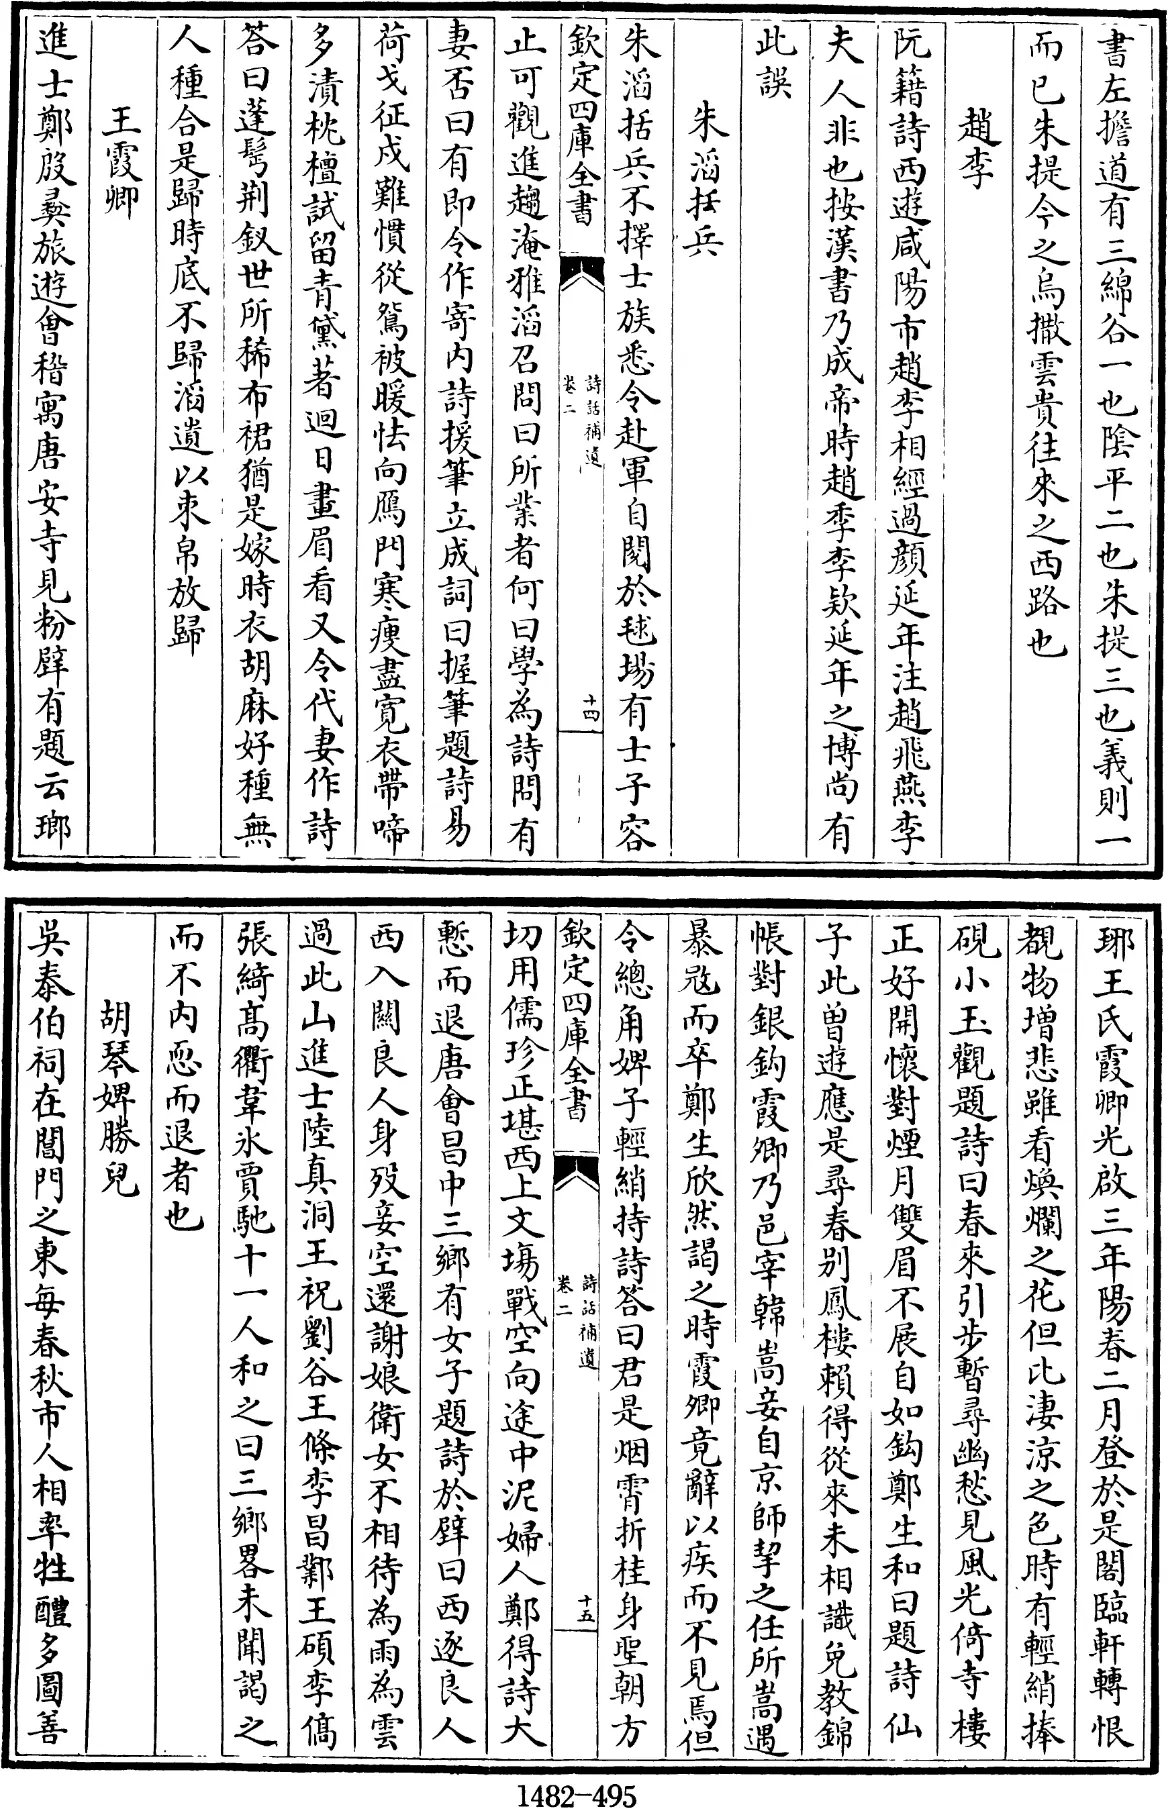 書左擔道有三綿谷一也隂平二也朱提三也義則一
而已朱提今之烏撒雲貴往來之西路也
趙李
阮籍詩西遊咸陽市趙李相經過顔延年注趙飛燕李
夫人非也按漢書乃成帝時趙季李欵延年之博尚有
此誤
朱滔括兵
朱滔括兵不擇士族悉令赴軍自閱於毬場有士子容
欽定四庫全書
詩話補遺
卷二
十四
止可觀進趨淹雅滔召問曰所業者何曰學為詩問有
妻否曰有即令作寄内詩援筆立成詞曰握筆題詩易
荷戈征戍難慣從鴛被暖怯向鴈門寒瘦盡寛衣帶啼
多漬枕檀試留青黛著迴日畫眉看又令代妻作詩
答曰蓬鬢荆釵世所稀布裙猶是嫁時衣胡麻好種無
人種合是歸時底不歸滔遺以束帛放歸
王霞卿
進士鄭殷彝旅遊會稽寓唐安寺見粉壁有題云瑯
琊王氏霞卿光啟三年陽春二月登於是閣臨軒轉恨
覩物増悲雖看煥爛之花但比淒涼之色時有輕綃捧
硯小玉觀題詩曰春來引步暫尋幽愁見風光倚寺樓
正好開懷對煙月雙眉不展自如鈎鄭生和曰題詩仙
子此曽遊應是尋春别鳳樓賴得從來未相識免教錦
帳對銀鈎霞卿乃邑宰韓嵩妾自京師挈之任所嵩遇
暴寇而卒鄭生欣然謁之時霞卿竟辭以疾而不見焉但
令總角婢子輕綃持詩答曰君是烟霄折桂身聖朝方
欽定四庫全書
詩話補遺
卷二
十五
切用儒珍正堪西上文塲戰空向途中泥婦人鄭得詩大
慙而退唐會昌中三鄉有女子題詩於壁曰西逐良人
西入關良人身殁妾空還謝娘衛女不相待為雨為雲
過此山進士陸真洞王祝劉谷王條李昌鄴王碩李僑
張綺髙衢韋氷賈馳十一人和之曰三鄉畧未聞謁之
而不内恧而退者也
胡琴婢勝兒
吳泰伯祠在閶門之東每春秋市人相率牲醴多圖善
1482-495